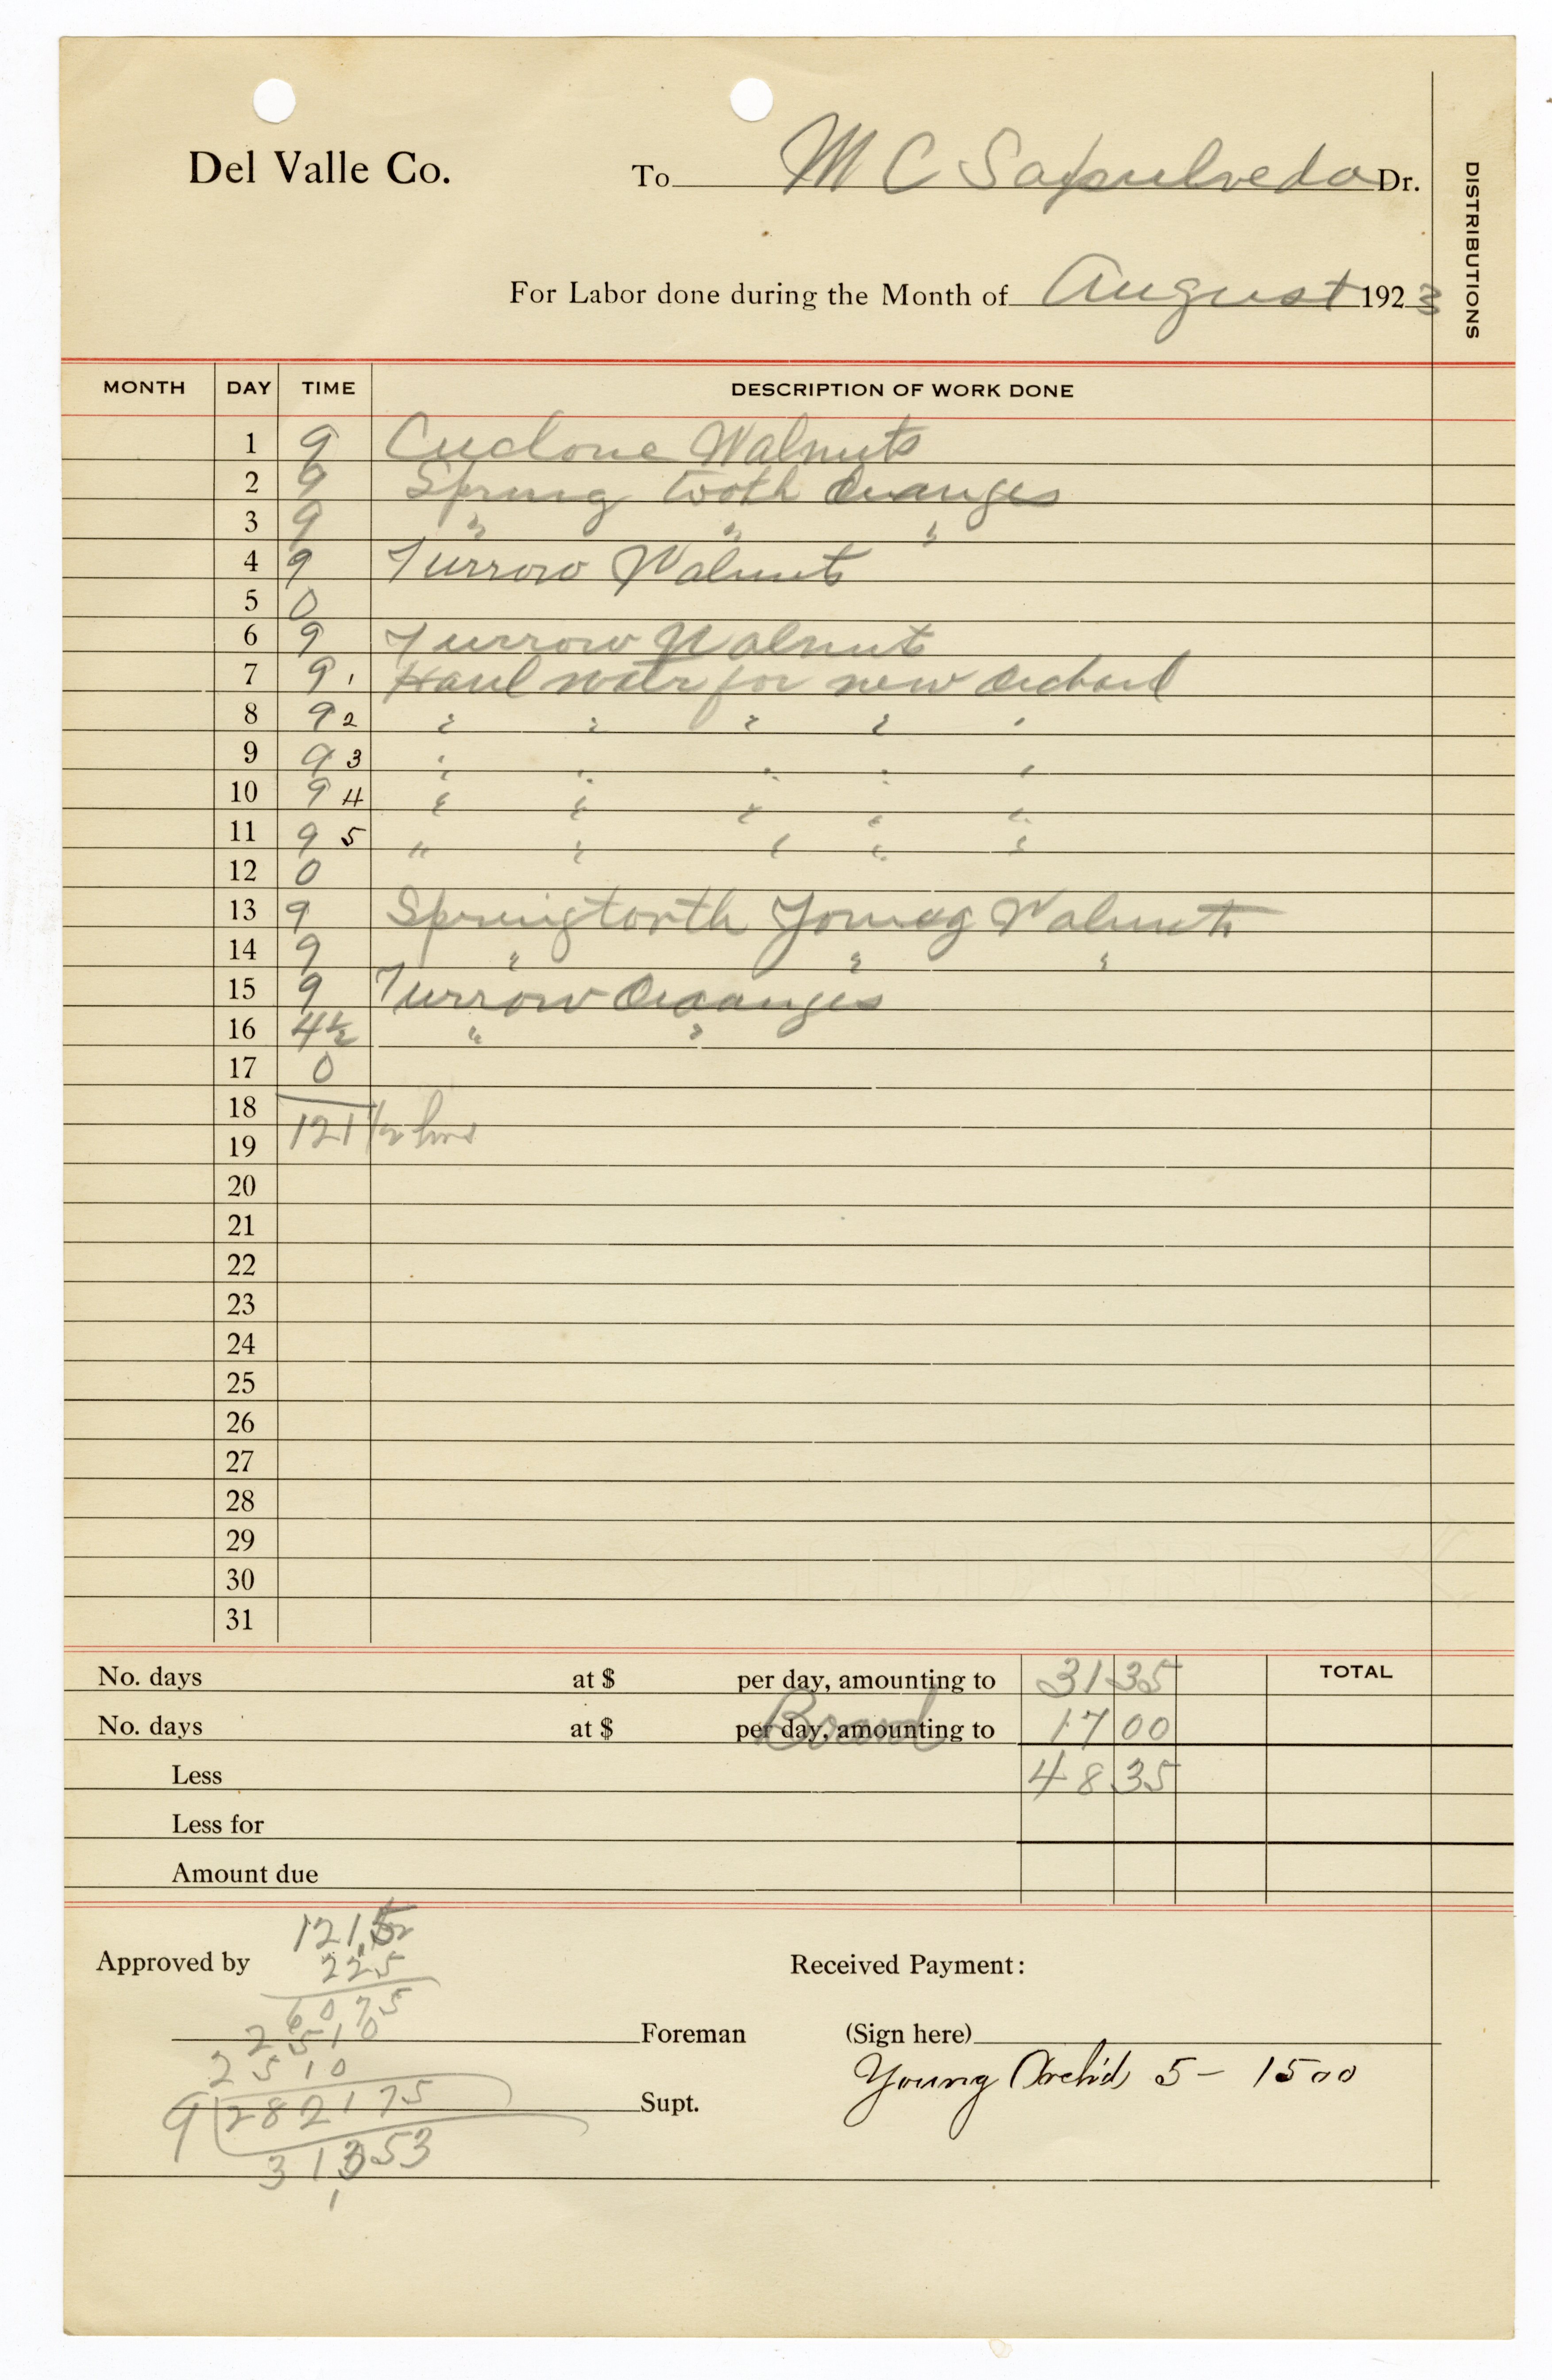 Del Valle Co. To M C Sapulveda Dr.
DISTRIBUTIONS
For Labor done during the Month of August 1923
MONTH DAY TIME DESCRIPTION OF WORK DONE
1 9 Cuclone Walnuts
2 9 Spring tooth Oranges
3 9 " " "
4 9 Furrow Walnuts
5 0
6 9 Furrow Walnuts
7 9 1 Haul water for new Orchard
8 9 2 " " " " "
9 9 3 " " " " "
10 9 4 " " " " "
11 9 5 " " " " "
12 0
13 9 Springtooth Young Walnuts
14 9 " " "
15 9 Furrow Oraanges
16 4½ " "
17 0
18
19 121 1/2 hrs
20
21
22
23
24
25
26
27
28
29
30
31
No. days at $ per day, amounting to 31 35 TOTAL
No. days at $ per day, amounting to Board 17 00
Less 48 35
Less for
Amount due
121.5
Approved by 225 Received Payment:
6075
2510 Foreman (Sign here)
2510 Young Orch'd 5 - 1500
9 282175 Supt.
31353
1